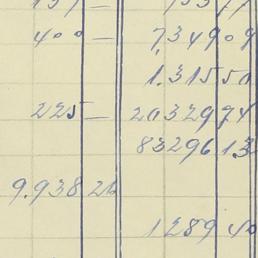 400 — 7,349 09
1.315 50
225 — 20329 74
83296 13
9.938 26
1289 40